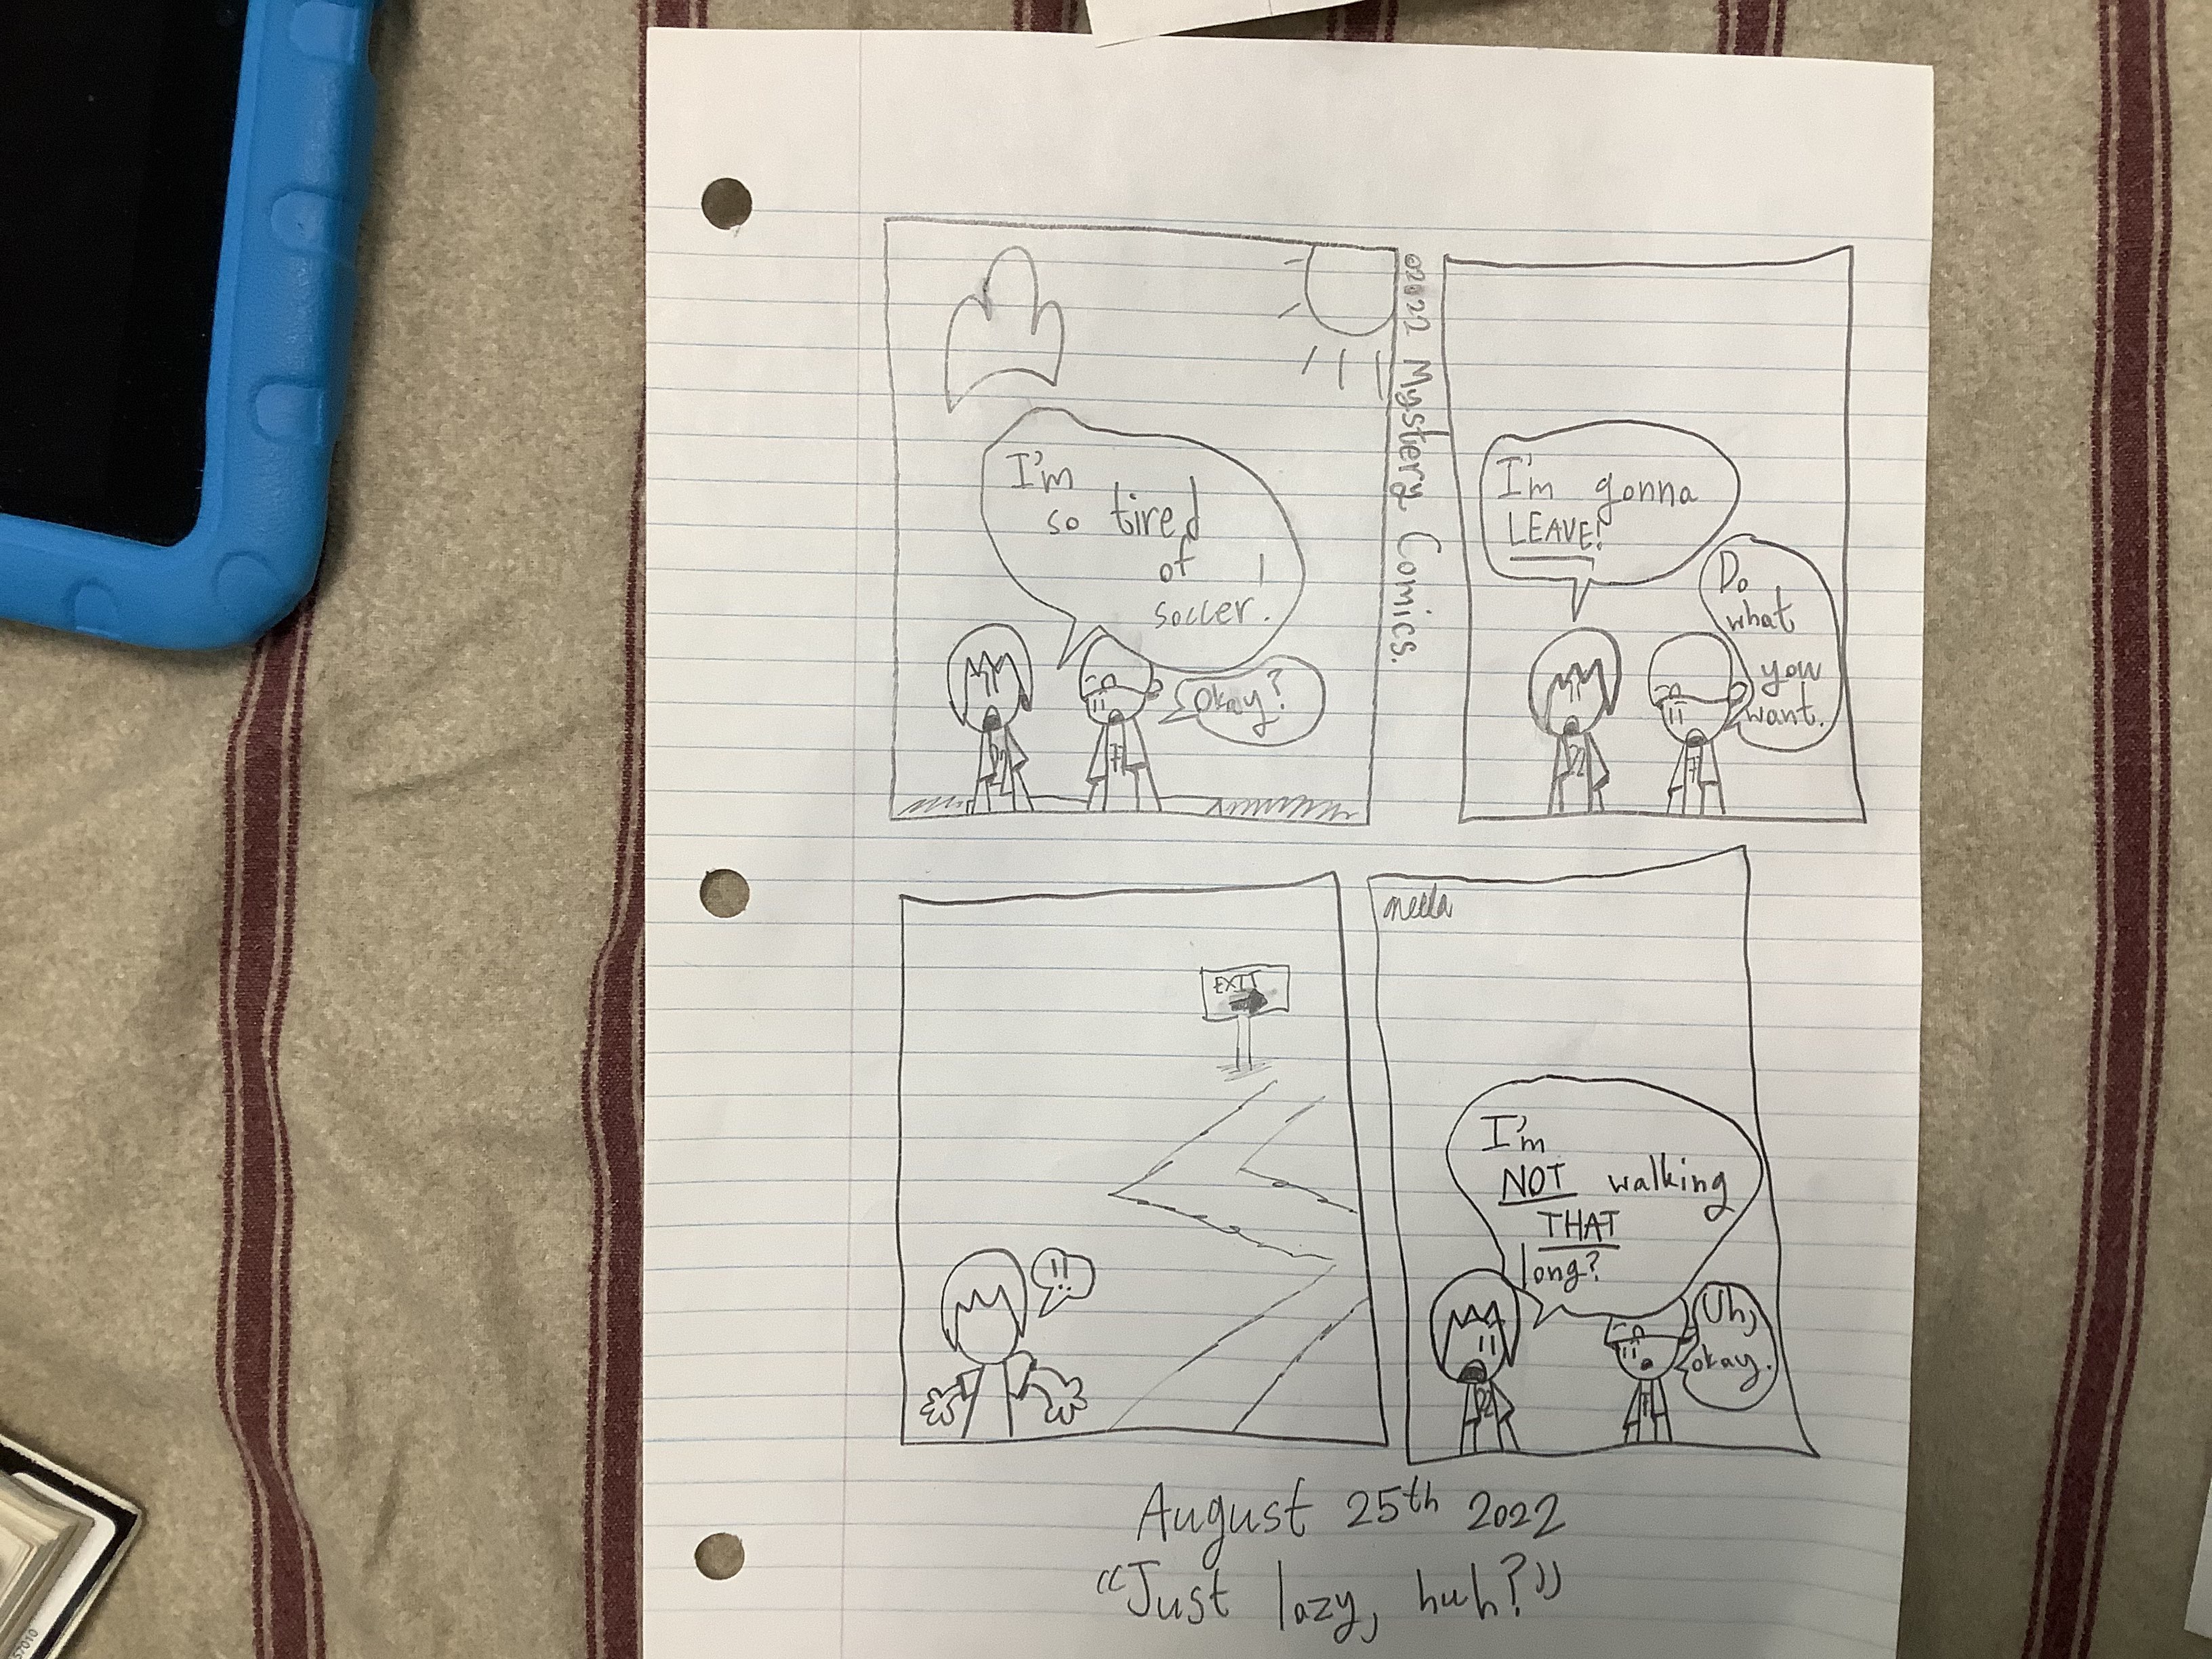 I'm
so tired
of
soccer.
Okay?
©2022 Mystery Comics.
I'm gonna
LEAVE!
Do
what
you
want.
EXIT
!!
I'm
NOT walking
THAT
long?
Uh,
okay.
August 25th 2022
"Just lazy, huh?"
57010